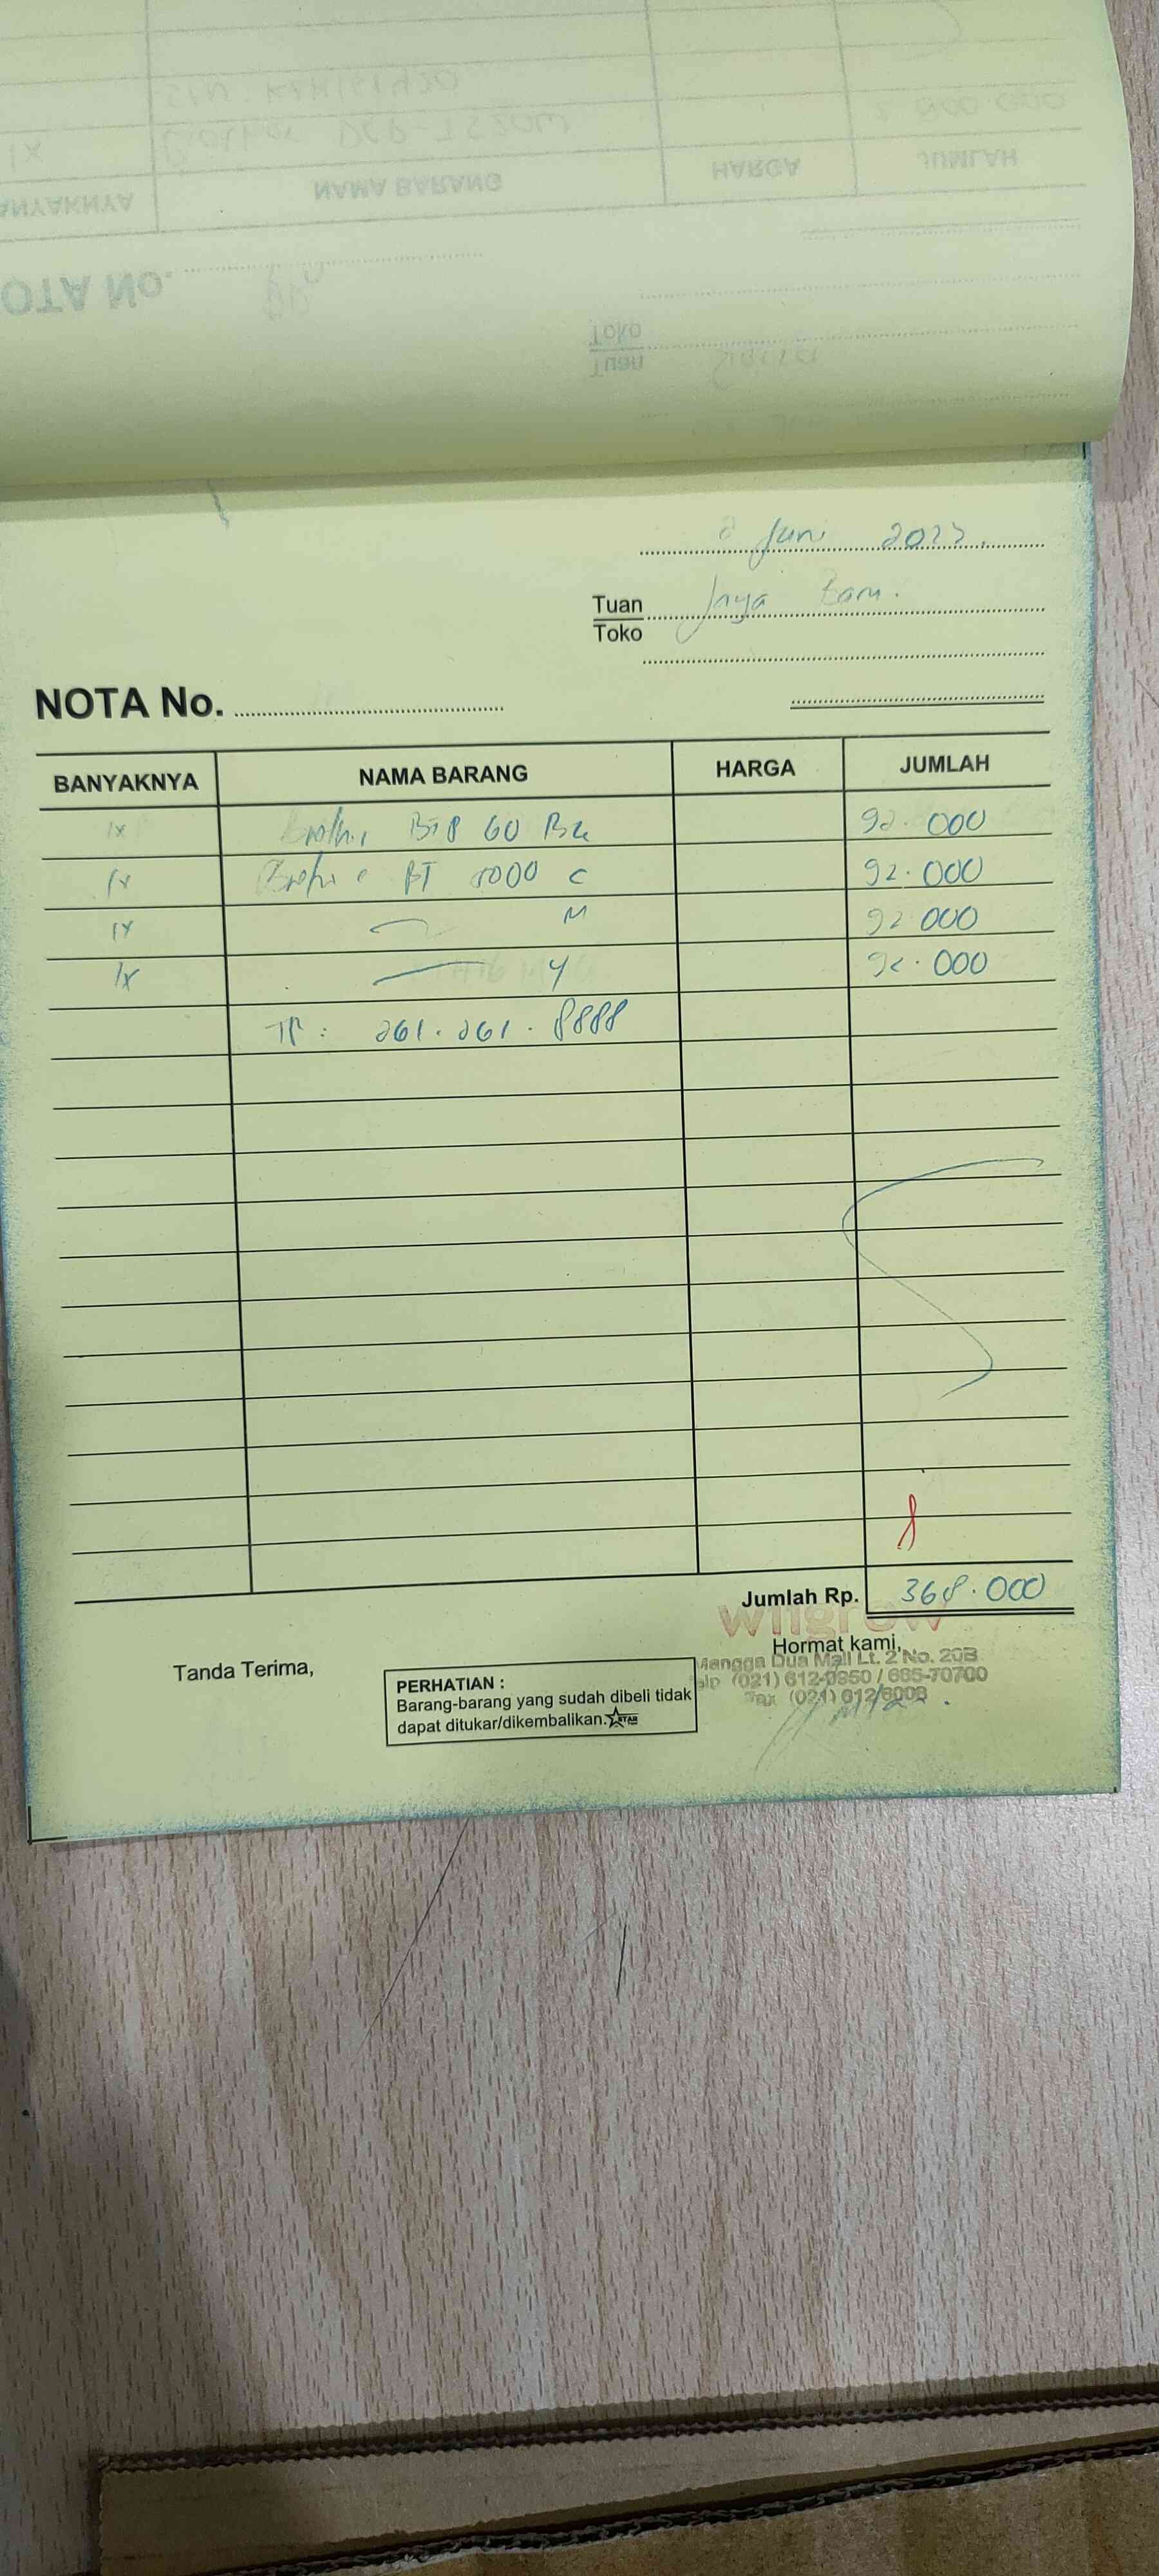 JUMLAH
HARGA
NAMA BARANG
ANYAKNYA
OTA No.
Toko
Tuan
Juni 2023.
Tuan Jaya Baru.
Toko
NOTA No.
BANYAKNYA NAMA BARANG HARGA JUMLAH
1x Brother 60 Bk 92.000
1x Brother BT 5000 C 92.000
1x M 92.000
1x Y 92.000
TP : 261.261.8888
Jumlah Rp. 368.000
wiigrow
Tanda Terima, Hormat kami,
Mangga Dua Mall Lt. 2 No. 20B
elp (021) 612-9850 / 685-70700
Fax (021) 612/6008
PERHATIAN :
Barang-barang yang sudah dibeli tidak
dapat ditukar/dikembalikan. STAR